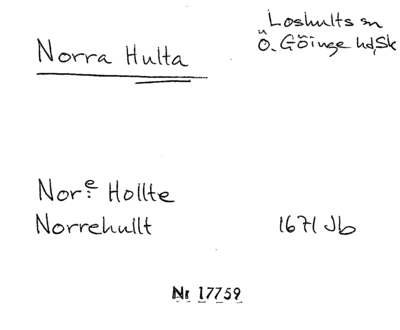 Loshults sn
Norra Hulta Ö. Göinge hd, Sk
Nor:ᵉ Hollte
Norrehullt 1671 Jb
Nr 17759